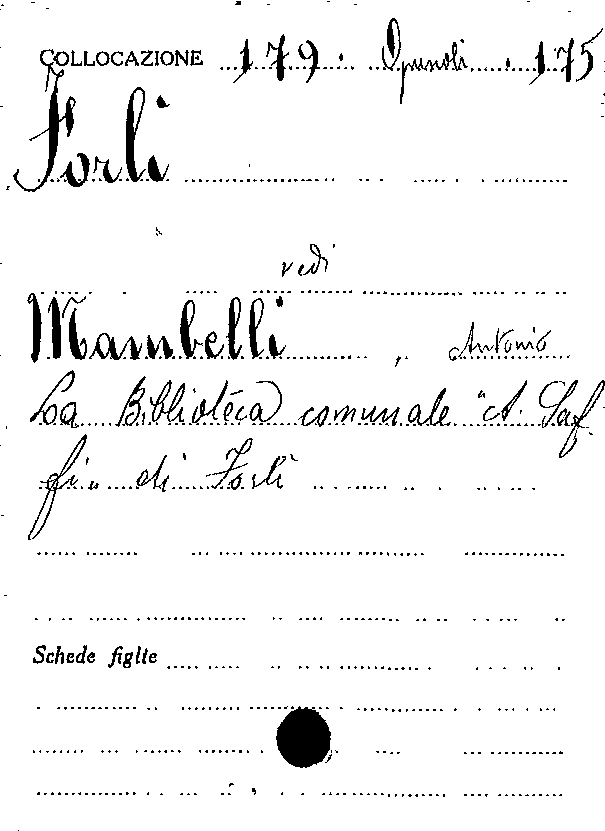 COLLOCAZIONE 179. Opuscoli. 175
Forlì
vedi
Mambelli, Antonio
La Biblioteca comunale "A. Saf-
fi" di Forlì
Schede figlie